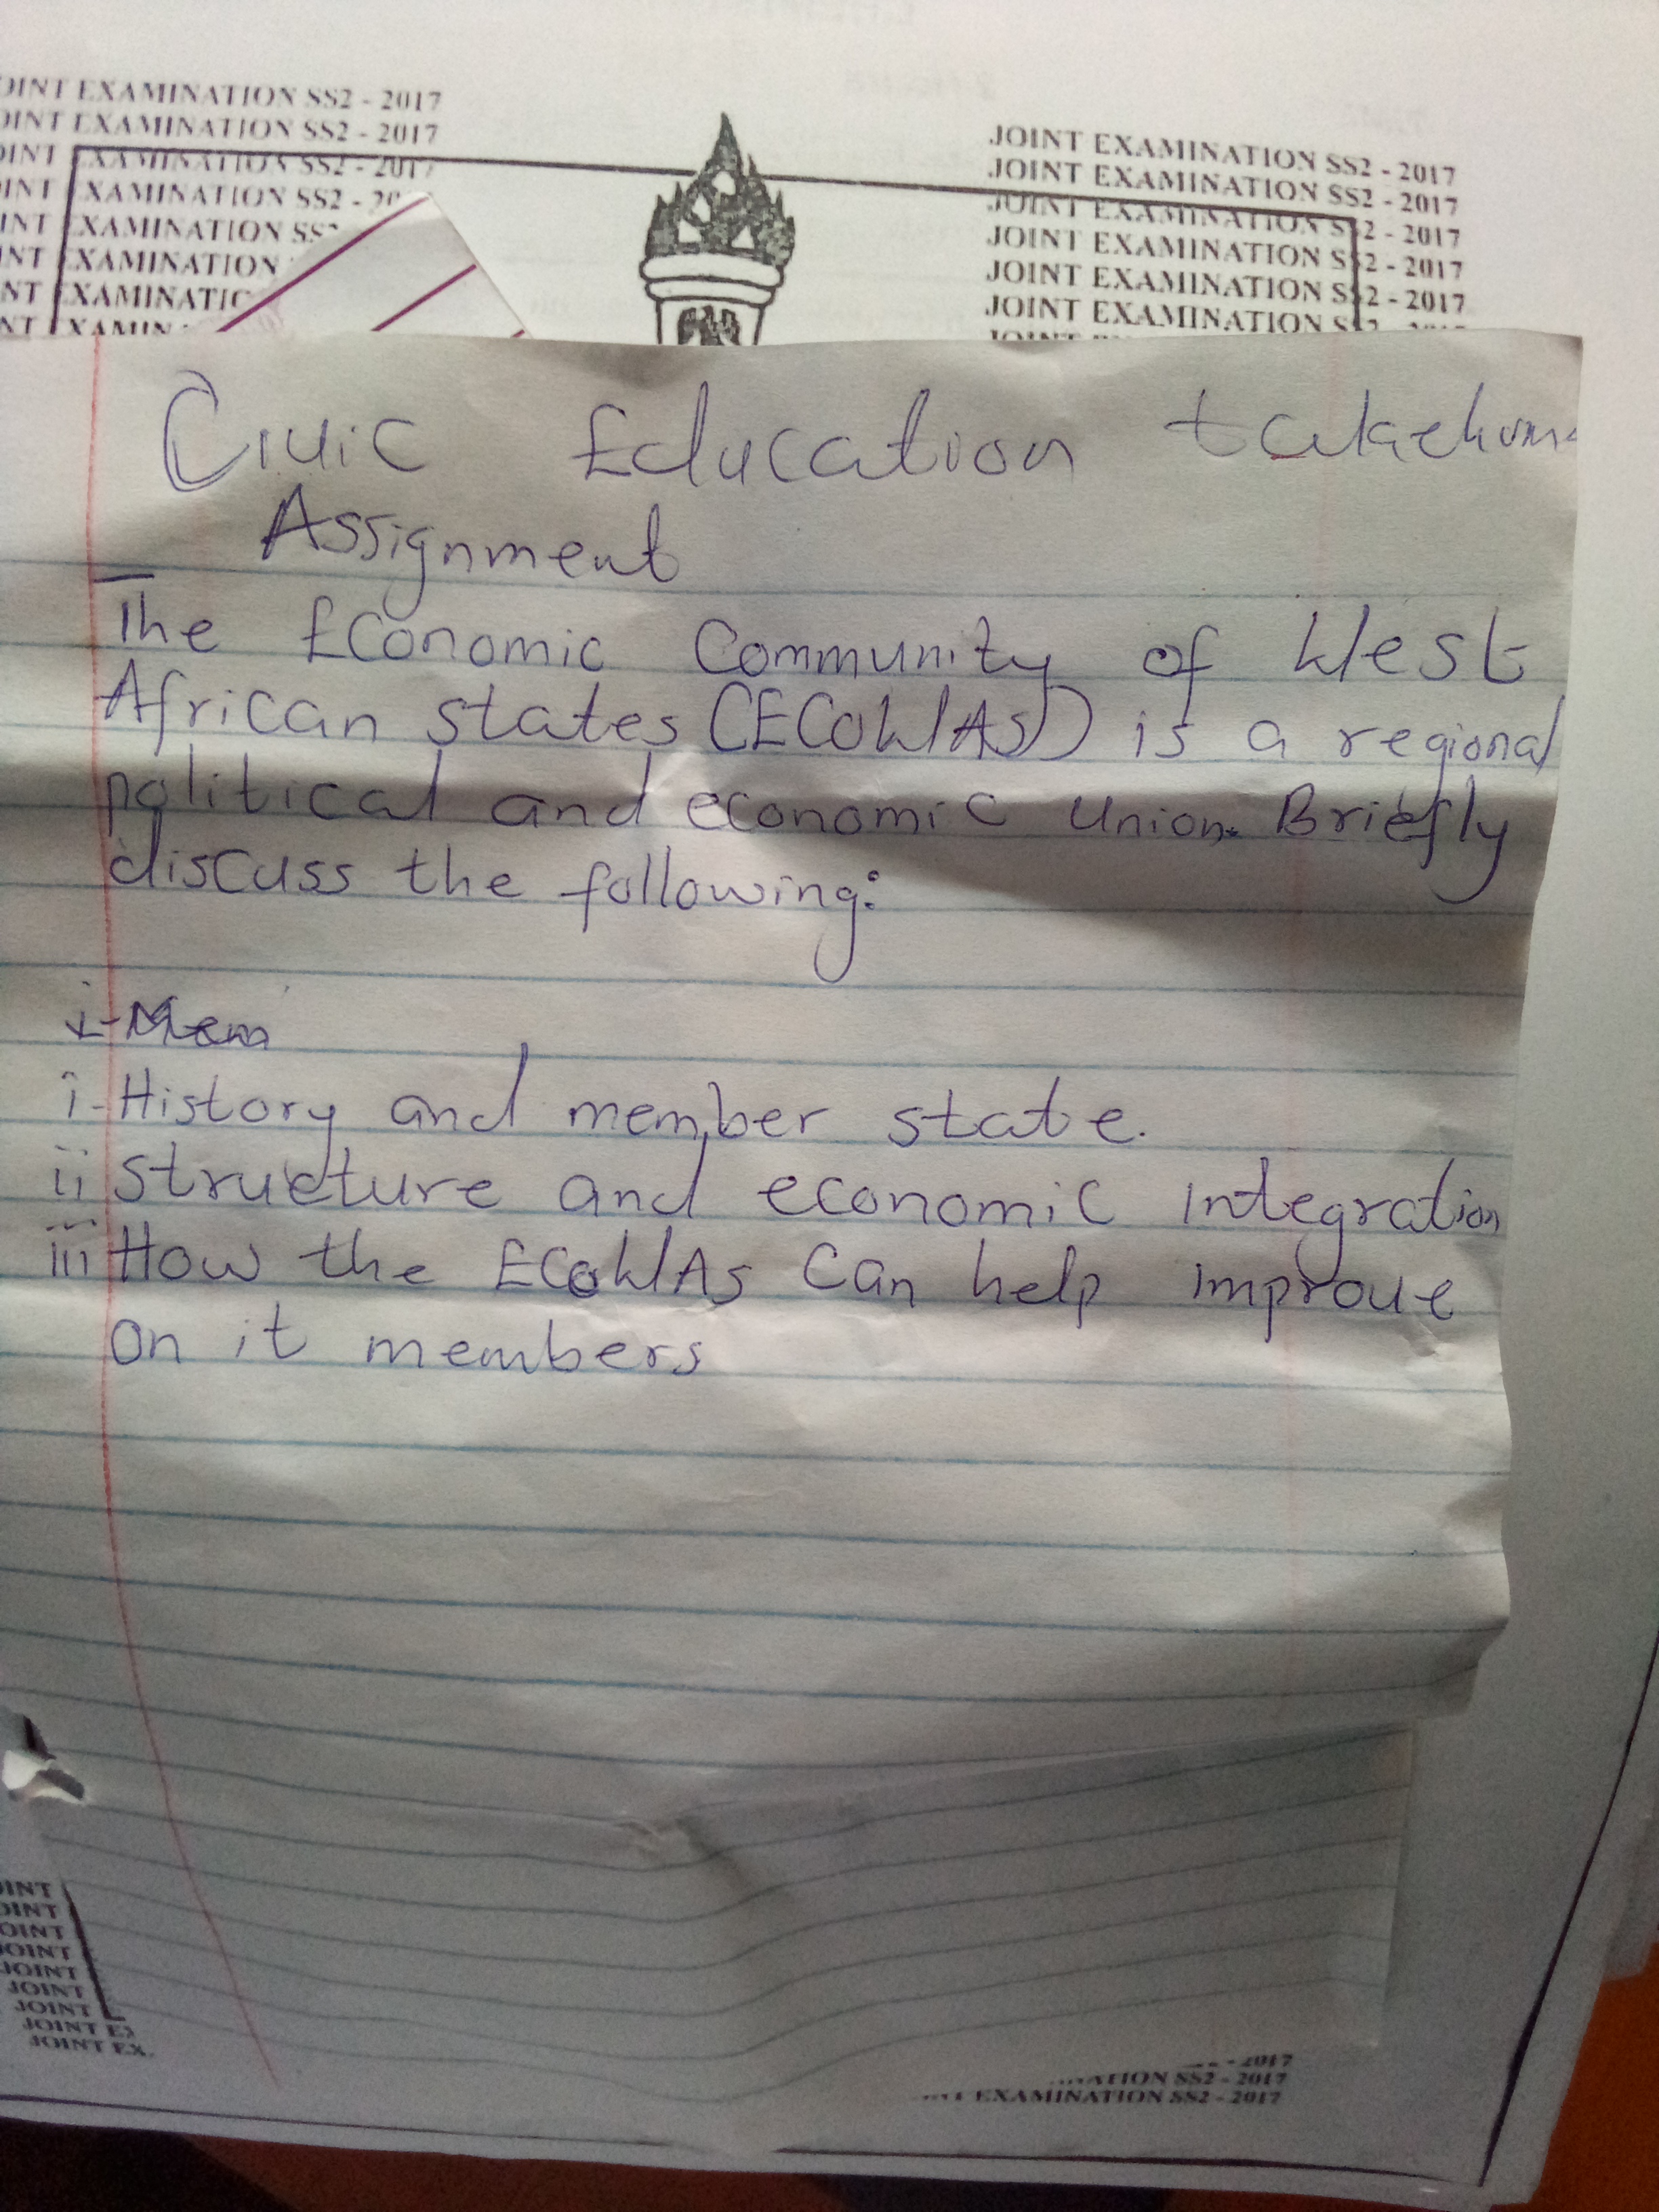 JOINT EXAMINATION SS2 - 2017
JOINT EXAMINATION SS2 - 2017
JOINT EXAMINATION SS2 - 2017
JOINT EXAMINATION SS2 - 2017
JOINT EXAMINATION SS2 - 2017
JOINT EXAMINATION SS2 - 2017
OINT EXAMINATION SS2 - 2017
OINT EXAMINATION SS2 - 2017
OINT EXAMINATION SS2 - 2017
INT EXAMINATION SS2 - 20
INT EXAMINATION SS
NT EXAMINATION
NT EXAMINATIO
NT EXAMIN
Civic Education takehome
Assignment
The Economic Community of West
African states (ECOWAS) is a regional
political and economic union. Briefly
discuss the following:
i-Mem
i-History and member state.
ii structure and economic integration
iii How the ECOWAS Can help improve
on it members
OINT
OINT
OINT
JOINT
JOINT
JOINT
JOINT
JOINT EX
JOINT EX.
- 2017
ATION SS2 - 2017
EXAMINATION SS2 - 2017